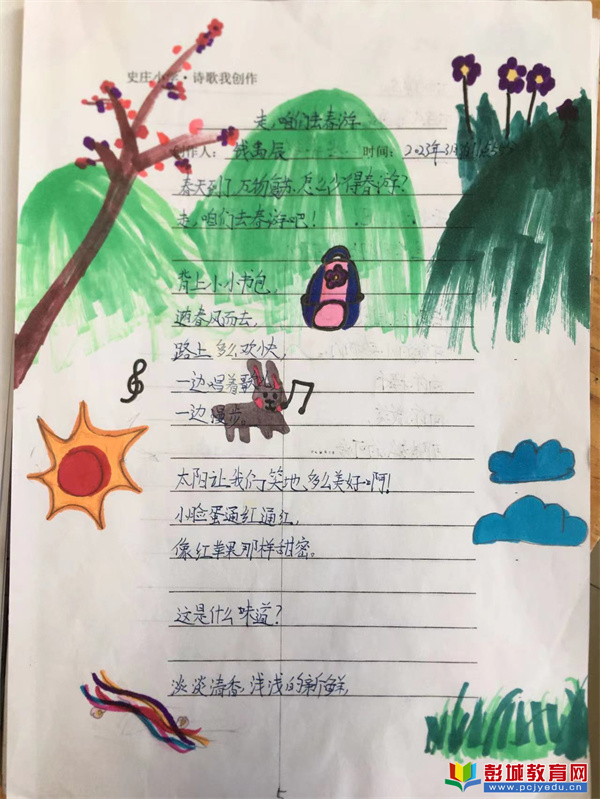 史庄小学·诗歌我创作
走,咱们去春游
创作人: 辰 时间: 2023年3月
春天到了,万物复苏,怎么少得春游?
走,咱们去春游吧!
背上小小书包,
迎春风而去,
路上多么欢快,
一边唱着歌
一边漫步。
……
太阳让我们笑地多么美好啊!
小脸蛋通红通红,
像红苹果那样甜密。
这是什么味道?
淡淡清香,浅浅的新鲜,
5
彭城教育网
www.pcjyedu.cn